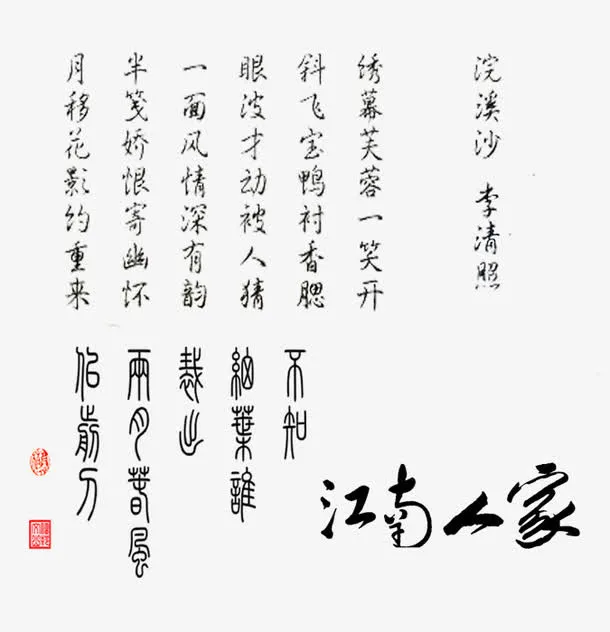 浣溪沙 李清照
绣幕芙蓉一笑开
斜飞宝鸭衬香腮
眼波才动被人猜
一面风情深有韵
半笺娇恨寄幽怀
月移花影约重来
不知
細葉誰
裁出
兩月春風
似剪刀
江南人家